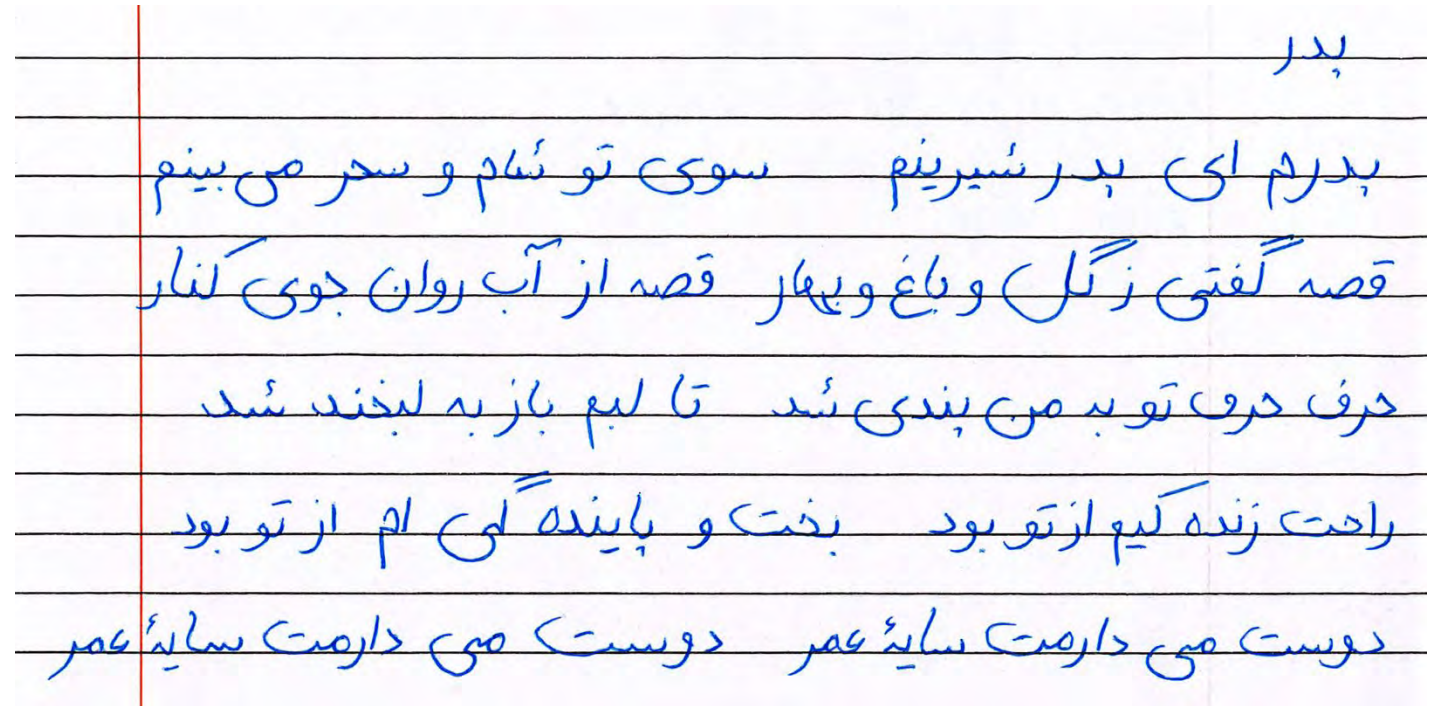 پدر
پدرم ای پدر شیرینم سوی تو شام و سحر می بینم
قصه گفتی ز گل و باغ و بهار قصه از آب روان جوی کنار
حرف حرف تو به من پندی شد تا لبم باز به لبخند شد
راحت زنده گیم از تو بود بخت و پاینده گی ام از تو بود
دوست می دارمت سایهٔ عمر دوست می دارمت سایهٔ عمر